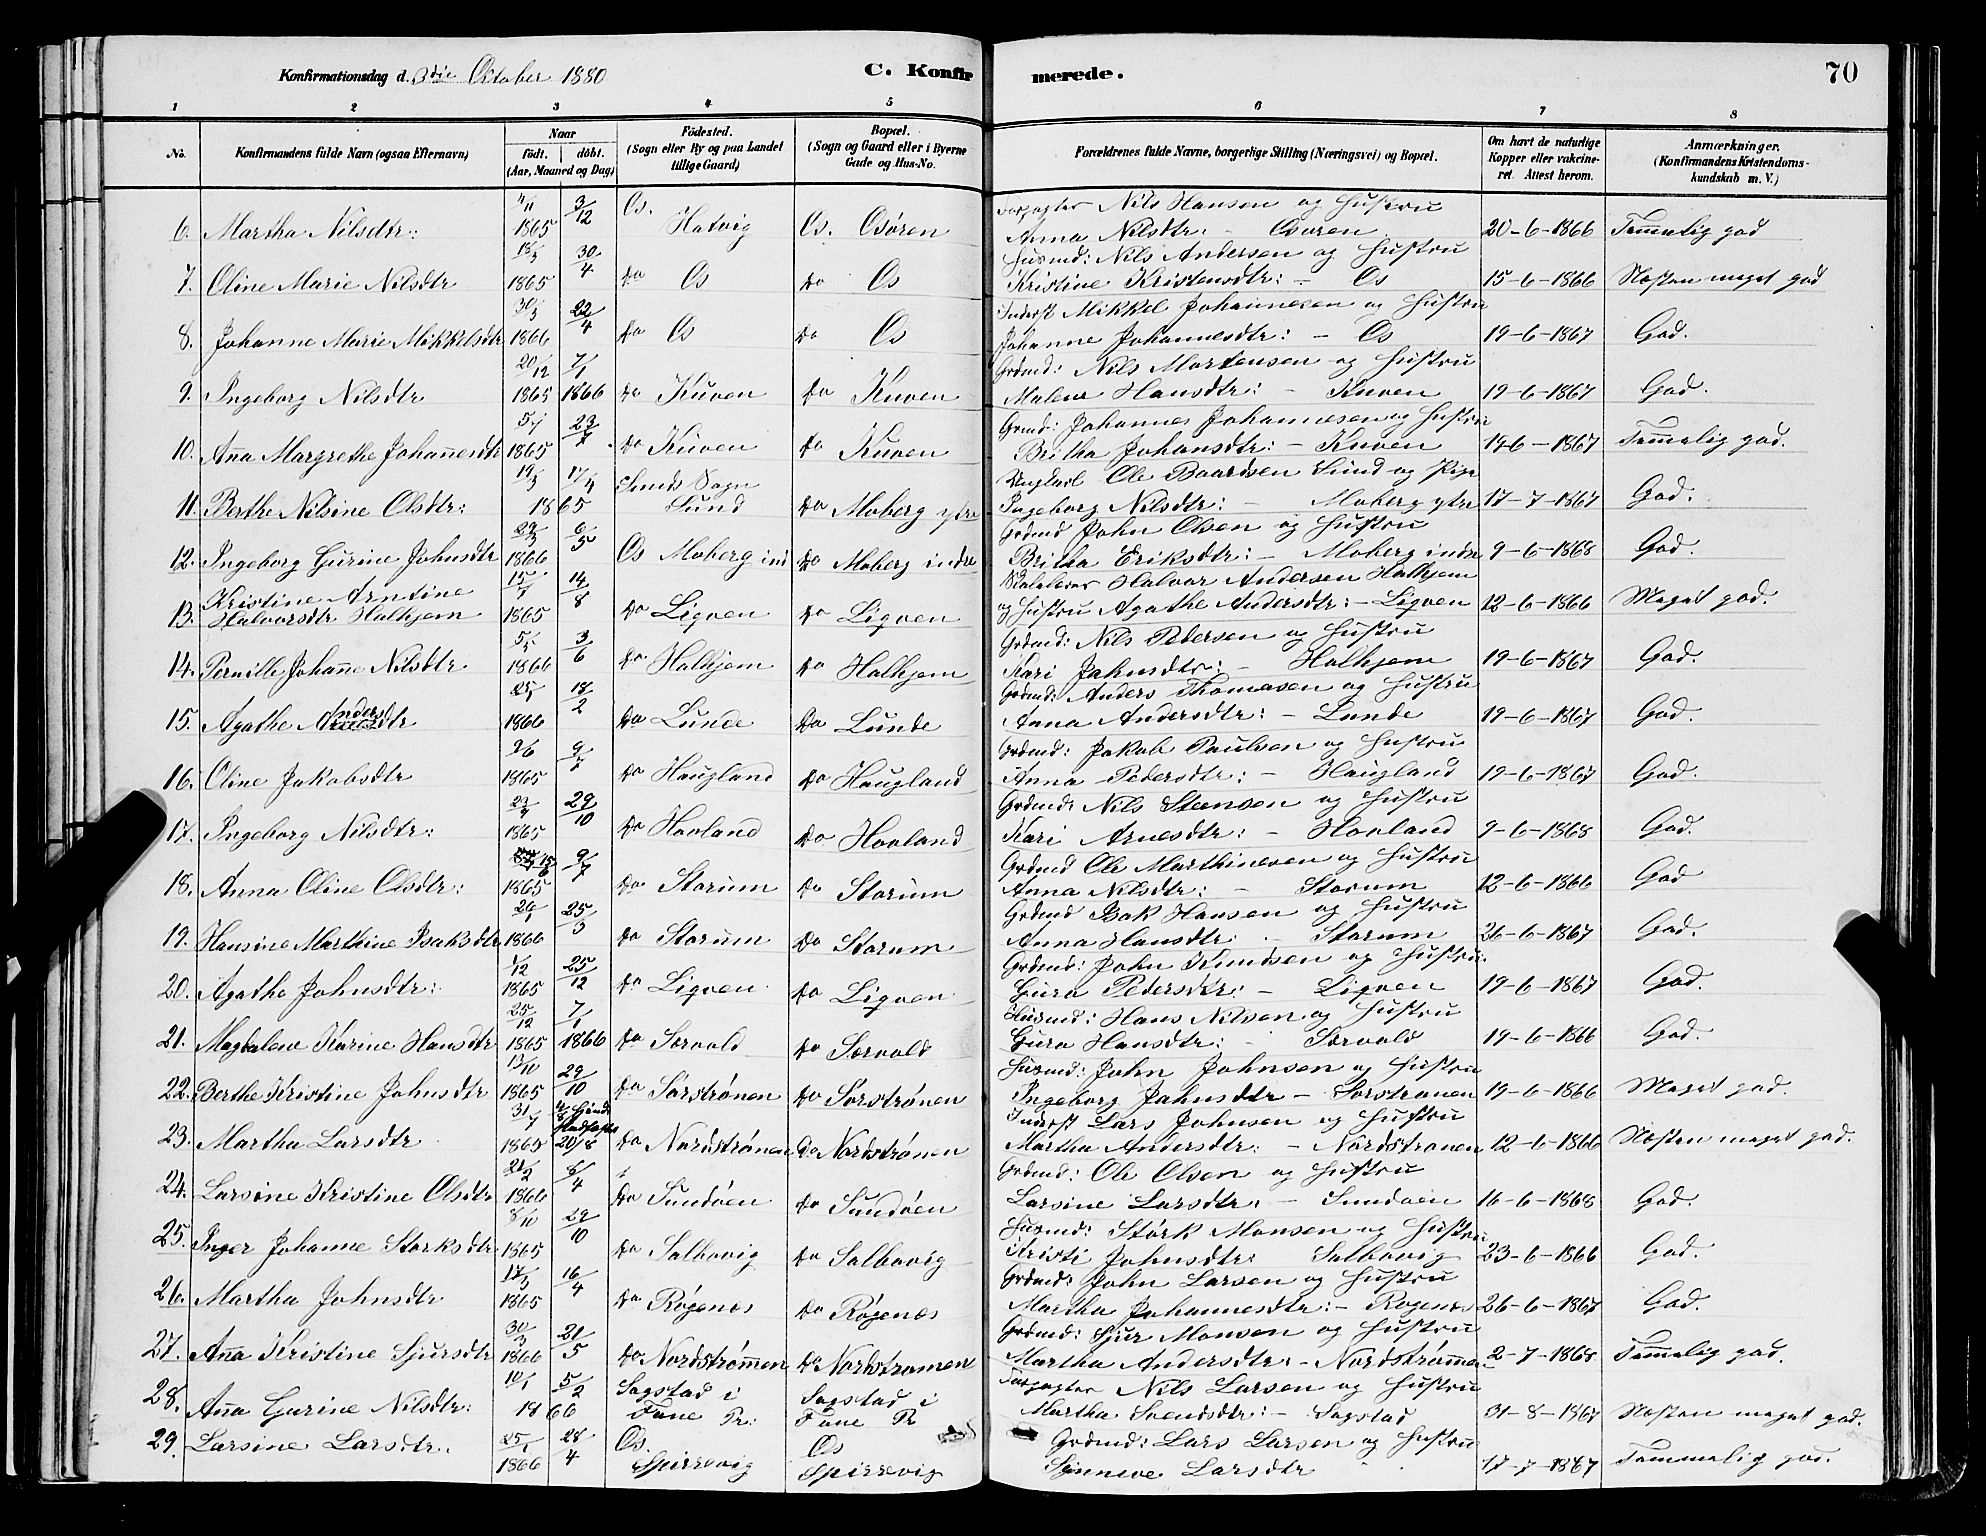 Konfirmationsdag d. 3die October 1880 C. Konfirmerede. 70
1 2 3 4 5 6 7 8
No. Konfirmandens fulde Navn (ogsaa Efternavn) Naar født. døbt. (Aar, Maaned og Dag) Fødested. (Sogn eller By og paa Landet tillige Gaard) Bopæl. (Sogn og Gaard eller i Byerne Gade og Hus-No. Forældrenes fulde Navne, borgerlige Stilling (Næringsvei) og Bopæl. Om havt de naturlige Kopper eller vakcineret. Attest herom. Anmærkninger. (Konfirmandens Kristendomskundskab m. V.)
4/11 3/12 Os. Forpagter Nils Hansen og Hustru
6. Martha Nilsdtr: 1865 Hatvig Os. Osøren Anna Nilsdtr: – Osøren 20-6-1866 Temmelig god
18/3 30/4 Husmd: Nils Andersen og Hustru
7. Oline Marie Nilsdtr 1865 Do Os Do Os Kristine Kristensdtr: – Os 15-6-1866 Næsten meget god
30/3 22/4 Inderst Mikkel Johannesen og Hustru
8. Johanne Marie Mikkelsdtr 1866 Do Os Do Os Johanne Johannesdtr: – Os 19-6-1867 God.
20/12 7/1 Grdmd: Nils Mortensen og Hustru
9. Ingeborg Nilsdtr 1865 1866 Do Kuven Do Kuven Malene Hansdtr: – Kuven 19-6-1867 God.
23/7 Grmd: Johannes Johannesen og Hustru
10. Ana Margrethe Johanesdtr 1865 Do Kuven Do Kuven Britha Johansdtr: – Kuven 19-6-1867 Temmelig god.
19/3 17/4 Sunds Sogn Ole Baardsen Sund og Pige
11. Berthe Nilsine Olsdtr: 1865 Sund Do Moberg ytre Ingeborg Nilsdtr: – Moberg ytre 17-7-1867 God.
6/5 Grdmd John Olsen og Hustru
12. Ingeborg Gurine Johnsdtr 1866 Os Moberg ind Do Moberg indre Britha Eriksdtr: – Moberg indre 9-6-1868 God.
Kristine Arntine 15/7 14/8 Halvor Andersen Halhjem
13. Halvorsdtr Halhjem 1865 Do Ligven Do Ligven og Hustru Agathe Andersdtr: – Ligven 12-6-1866 Meget god.
3/6 Grdmd: Nils Pedersen og Hustru
14. Pernille Johane Nilsdtr 1866 Do Halhjem Do Halhjem Kari Johnsdtr: – Halhjem 19-6-1867 God.
25/1 18/2 Grdmd: Anders Thomasen og Hustru
15. Agathe Andersdtr 1866 Do Lunde Do Lunde Anna Andersdtr: – Lunde 19-6-1867 God.
2/6 9/7 Grdmd: Jakob Paulsen og Hustru
16. Oline Jakobsdtr 1865 Do Haugland Do Haugland Anna Pedersdtr: – Haugland 19-6-1867 God.
29/10 Grdmd: Nils Steensen og Hustru
17. Ingeborg Nilsdtr: 1865 Do Hovland Do Hovland Kari Arnesdtr: – Hovland 9-6-1868 God.
9/7 Grdmd Ole Marthinesen og Hustru
18. Anna Oline Olsdtr: 1865 Do Storum Do Storum Anna Nilsdtr: – Storum 12-6-1866 God
26/1 25/3 Grdmd Isak Hansen og Hustru
19. Hansine Marthine Isaksdtr 1866 Do Storum Do Storum Anna Hansdtr: Storum 26-6-1867 God.
1/12 25/12 Grdmd: John Knudsen og Hustru
20. Agathe Johnsdtr: 1865 Do Ligven Do Ligven Gura Pedersdtr: – Ligven 19-6-1867 God.
25/12 7/1 Husmd: Hans Nilsen og Hustru
21. Magdalene Karine Hansdtr 1865 1866 Do Særvold Do Særvold Gura Hansdtr: Særvold 19-6-1866 God.
13/10 29/10 Husmd: John Johnsen og Hustru
22. Berthe Kristine Johnsdtr 1865 Do Sørstrønen Do Sørstrønen Ingeborg Johnsdtr – Sørstrønen 19-6-1866 Meget god.
31/7 Inderst Lars Johnsen og Hustru
23. Martha Larsdtr 1865 20/8 Do Nordstrønen Do Nordstrønen Martha Andersdtr: – Nordstrønen 12-6-1866 Næsten meget god.
21/2 8/4 Grdmd: Ole Olsen og Hustru
24. Larsine Kristine Olsdtr 1866 Do Sundøen Do Sundøen Larsine Larsdtr: – Sundøen 16-6-1868 God.
8/10 29/10 Husmd: Størk Monsen og Hustru
25. Inger Johanne Størksdtr 1865 Do Salbovig Do Salbovig Kristi Johnsdtr: Salbovig 23-6-1866 God.
17/3 16/4 Grdmd: John Larsen og Hustru
26. Martha Johnsdtr 1865 Do Røgenæs Do Røgenæs Martha Johannesdtr: – Røgenæs 26-6-1867 God.
30/3 21/5 Grdmd: Sjur Monsen og Hustru
27. Ana Kristine Sjursdtr 1866 Do Nordstrømen Do Nordstrømen Martha Andersdtr: – Nordstrømen 2-7-1868 Temmelig god.
10/1 5/2 Søgstad i Søgstad i Forpagter Nils Larsen og Hustru
28. Ana Gurine Nilsdtr: 1866 Fane Pr: Fane Pr Martha Svendsdtr: – Søgstad 31-8-1867 Næsten meget god.
29. Larsine Larsdtr. 25/1 28/4 Os. Os Grdmd: Lars Larsen og Hustru
1866 Spirrevig Spirrevig Synneve Larsdtr 17-7-1867 Temmelig god.